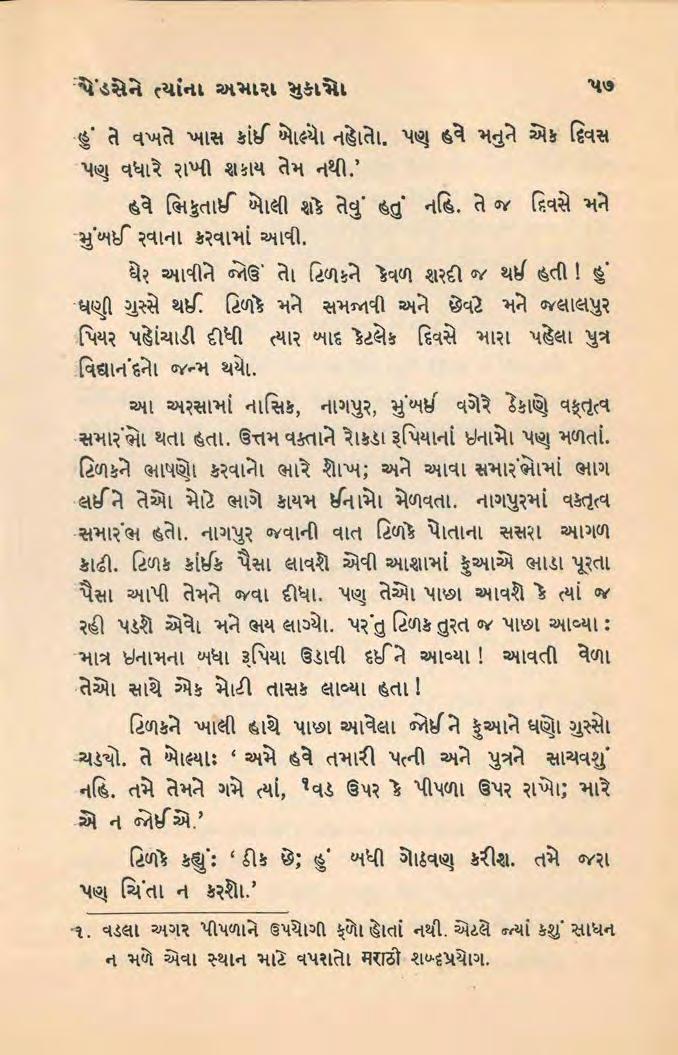 પેંડસેને ત્યાંના અમારા મુકામો ૫૭
હું તે વખતે ખાસ કાંઈ બોલ્યો નહોતો. પણ હવે મનુને એક દિવસ
પણ વધારે રાખી શકાય તેમ નથી.’
હવે ભિકુતાઈ બોલી શકે તેવું હતું નહિ. તે જ દિવસે મને
મુંબઈ રવાના કરવામાં આવી.
ઘેર આવીને જોઉં તો ટિળકને કેવળ શરદી જ થઈ હતી ! હું
ઘણી ગુસ્સે થઈ. ટિળકે મને સમજાવી અને છેવટે મને જલાલપુર
પિયર પહોંચાડી દીધી ત્યાર બાદ કેટલેક દિવસે મારા પહેલા પુત્ર
વિદ્યાનંદનો જન્મ થયો.
આ અરસામાં નાસિક, નાગપુર, મુંબઈ વગેરે ઠેકાણે વક્તૃત્વ
સમારંભો થતા હતા. ઉત્તમ વક્તાને રોકડા રૂપિયાનાં ઇનામો પણ મળતાં.
ટિળકને ભાષણો કરવાનો ભારે શોખ; અને આવા સમારંભોમાં ભાગ
લઈને તેઓ મોટે ભાગે કાયમ ઈનામો મેળવતા. નાગપુરમાં વક્તૃત્વ
સમારંભ હતો. નાગપુર જવાની વાત ટિળકે પોતાના સસરા આગળ
કાઢી. ટિળક કાંઈક પૈસા લાવશે એવી આશામાં ફુઆએ ભાડા પૂરતા
પૈસા આપી તેમને જવા દીધા. પણ તેઓ પાછા આવશે કે ત્યાં જ
રહી પડશે એવો મને ભય લાગ્યો. પરંતુ ટિળક તુરત જ પાછા આવ્યા :
માત્ર ઇનામના બધા રૂપિયા ઉડાવી દઈને આવ્યા ! આવતી વેળા
તેઓ સાથે એક મોટી તાસક લાવ્યા હતા !
ટિળકને ખાલી હાથે પાછા આવેલા જોઈને ફુઆને ઘણો ગુસ્સો
ચડયો. તે બોલ્યાઃ ‘ અમે હવે તમારી પત્ની અને પુત્રને સાચવશું
નહિ. તમે તેમને ગમે ત્યાં, ૧વડ ઉપર કે પીપળા ઉપર રાખો; મારે
એ ન જોઈએ.’
ટિળકે કહ્યું: ‘ ઠીક છે; હું બધી ગોઠવણ કરીશ. તમે જરા
પણ ચિંતા ન કરશો.’
૧. વડલા અગર પીપળાને ઉપયોગી ફળો હોતાં નથી. એટલે જ્યાં કશું સાધન
ન મળે એવા સ્થાન માટે વપરાતો मराठी શબ્દપ્રયોગ.